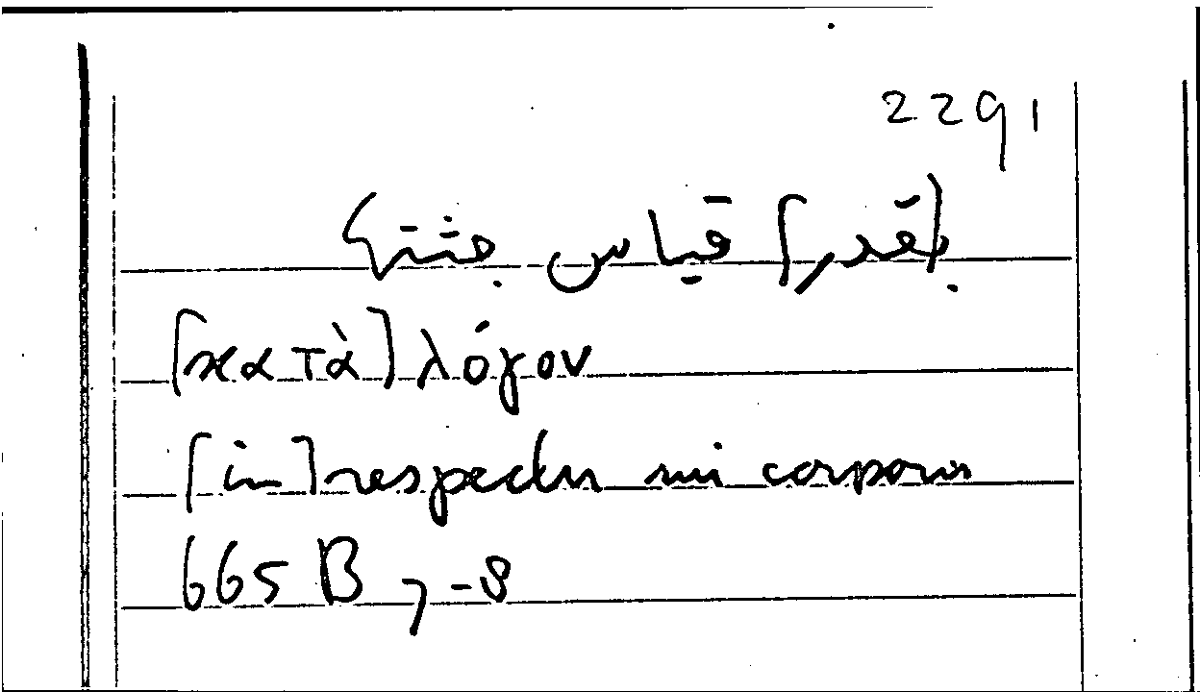 2291
[بقدر] قياس جثتها
[κατὰ] λόγον
[in] respectu sui corporis
665 B 7-8